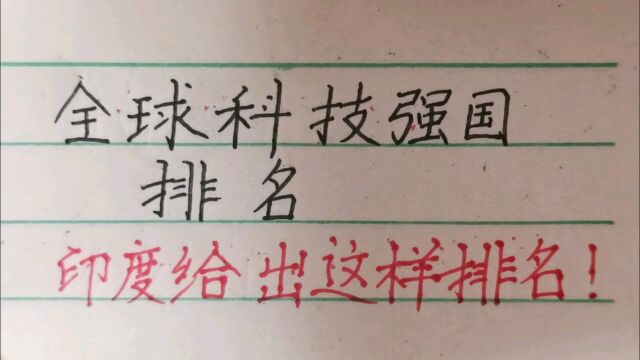 全球科技强国
排名
印度给出这样排名！